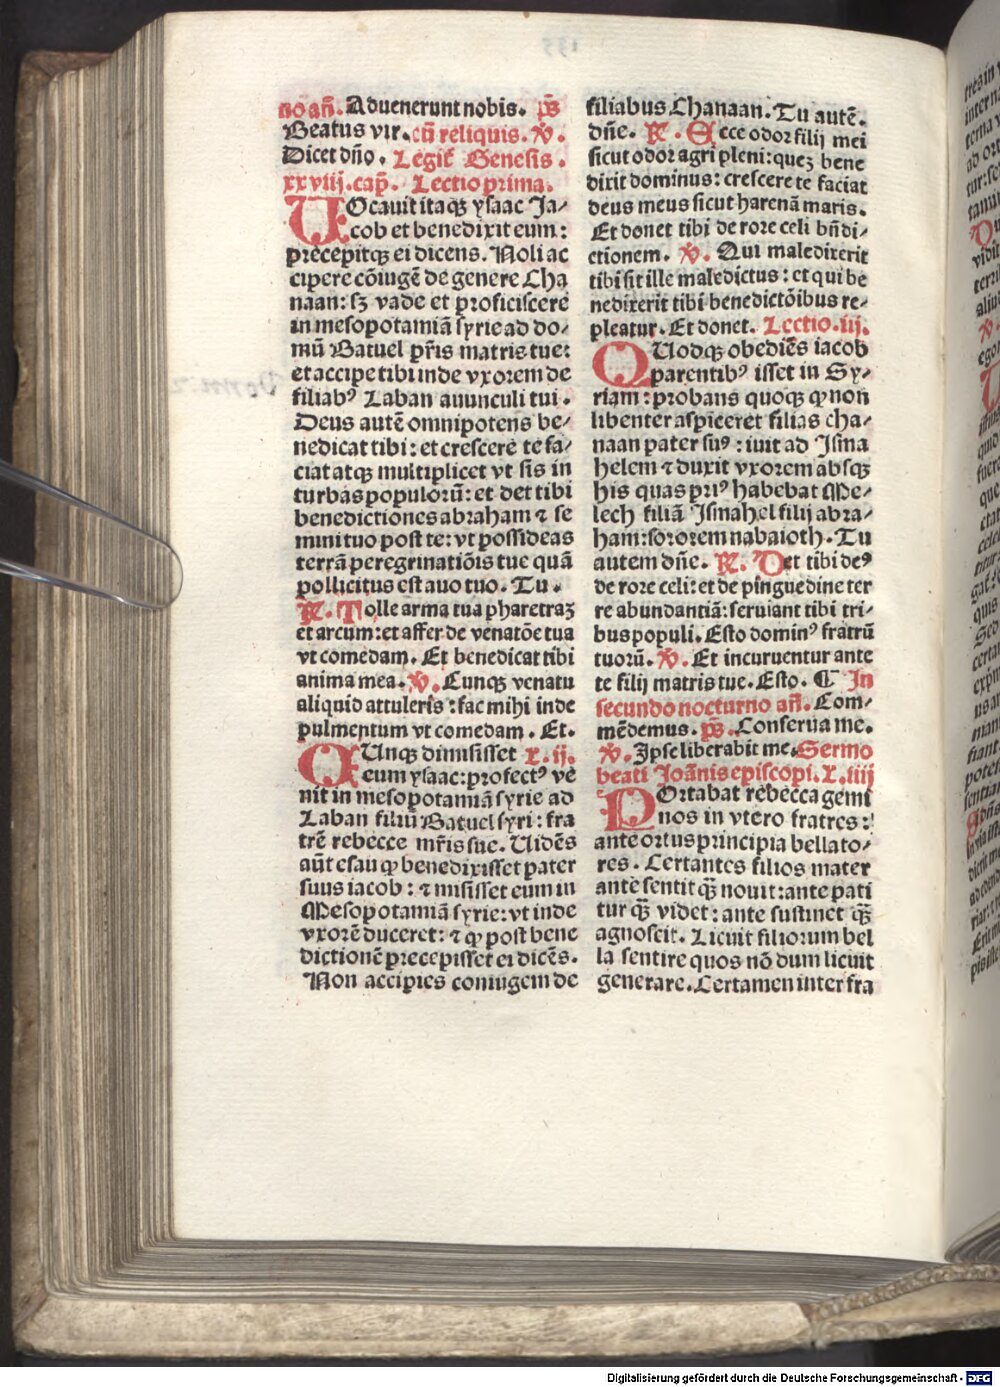 no añ. Aduenerunt nobis. p̄s
Beatus vir. cū reliquis. ℣.
Dicet dño. Legit̃ Genesis.
xxviij. cap̃. Lectio prima.
UOcauit itaqȝ ysaac Ja⸗
cob et benedixit eum:
precepitqȝ ei dicens. Noli ac
cipere cōiugē de genere Cha
naan: sȝ vade et proficiscere
in mesopotamiā syrie ad do⸗
mū Batuel pr̃is matris tue:
et accipe tibi inde vxorem de
filiabꝰ Laban auunculi tui.
Deus autē omnipotens be⸗
nedicat tibi: et crescere te fa⸗
ciat atqȝ multiplicet vt sis in
turbas populorū: et det tibi
benedictiones abraham ⁊ se
mini tuo post te: vt possideas
terrā peregrinatiōis tue quā
pollicitus est auo tuo. Tu.
℟. Tolle arma tua pharetraȝ
et arcum: et affer de venatōe tua
vt comedam. Et benedicat tibi
anima mea. ℣. Cunqȝ venatu
aliquid attuleris: fac mihi inde
pulmentum vt comedam. Et.
CUnqȝ dimisisset L. ij.
eum ysaac: profectꝰ ve
nit in mesopotamiā syrie ad
Laban filiū Batuel syri: fra
trē rebecce mr̃is sue. Uidēs
aūt esau ꝙ benedixisset pater
suus iacob: ⁊ misisset eum in
Mesopotamiā syrie: vt inde
vxorē duceret: ⁊ ꝙ post bene
dictionē precepisset ei dicēs.
Non accipies coniugem de
filiabus Chanaan. Tu autē.
dñe. ℟. Ecce odor filij mei
sicut odor agri pleni: queȝ bene
dixit dominus: crescere te faciat
deus meus sicut harenā maris.
Et donet tibi de rore celi bñdi⸗
ctionem. ℣. Qui maledixerit
tibi sit ille maledictus: et qui be
nedixerit tibi benedictōibus re⸗
pleatur. Et donet. Lectio. iij.
QUodqȝ obediēs iacob
parentibꝰ isset in Sy⸗
riam: probans quoqȝ ꝙ non
libenter aspiceret filias cha⸗
naan pater suꝰ: iuit ad Isma
helem ⁊ duxit vxorem absqȝ
his quas priꝰ habebat Me⸗
lech filiā Ismahel filij abra⸗
ham: sororem nabaioth. Tu
autem dñe. ℟. Det tibi deꝰ
de rore celi: et de pinguedine ter
re abundantiā: seruiant tibi tri⸗
bus populi. Esto dominꝰ fratrū
tuorū. ℣. Et incuruentur ante
te filij matris tue. Esto. ¶ In
secundo nocturno añ. Com⸗
mēdemus. p̄s. Conserua me.
℣. Ipse liberabit me. Sermo
beati Joānis episcopi. L. iiij
POrtabat rebecca gemi
nos in vtero fratres:
ante ortus principia bellato⸗
res. Certantes filios mater
ante sentit qȝ̃ nouit: ante pati
tur qȝ̃ videt: ante sustinet qȝ̃
agnoscit. Licuit filiorum bel
la sentire quos nō dum licuit
generare. Certamen inter fra
Digitalisierung gefördert durch die Deutsche Forschungsgemeinschaft - DFG